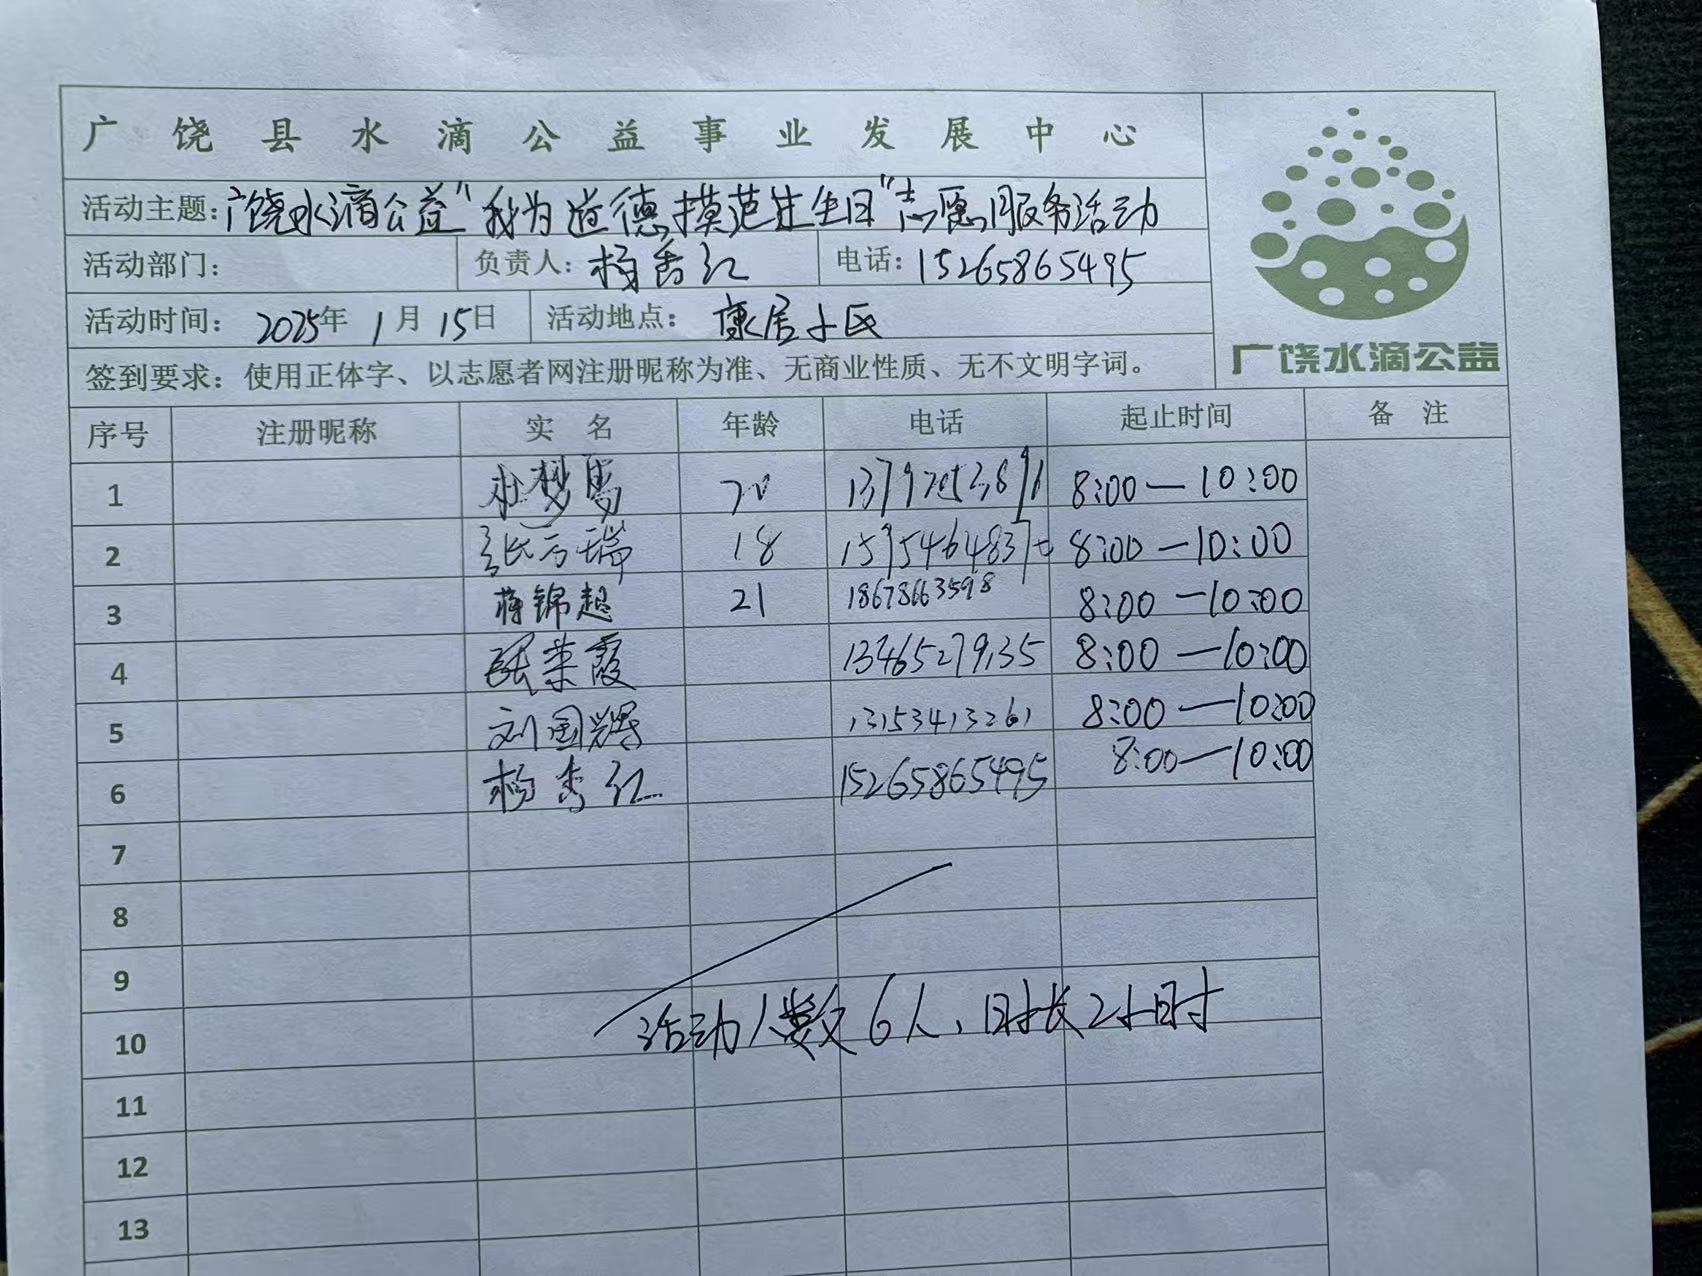 广饶县水滴公益事业发展中心
活动主题：广饶水滴公益“我为道德模范过生日”志愿服务活动
活动部门： 负责人：杨香红 电话：15265865495
活动时间： 2025年 1月 15日 活动地点： 康居小区
签到要求：使用正体字、以志愿者网注册昵称为准、无商业性质、无不文明字词。
广饶水滴公益
序号 注册昵称 实 名 年龄 电话 起止时间 备 注
1 杜梦 20 8:00—10:00
2 张方瑞 18 8:00—10:00
3 蒋锦超 21 18678663598 8:00—10:00
4 张荣霞 13465279135 8:00—10:00
5 刘国辉 13153413261 8:00—10:00
6 杨香红 15265865495 8:00—10:00
7
8
9
10 活动人数6人，时长2小时
11
12
13